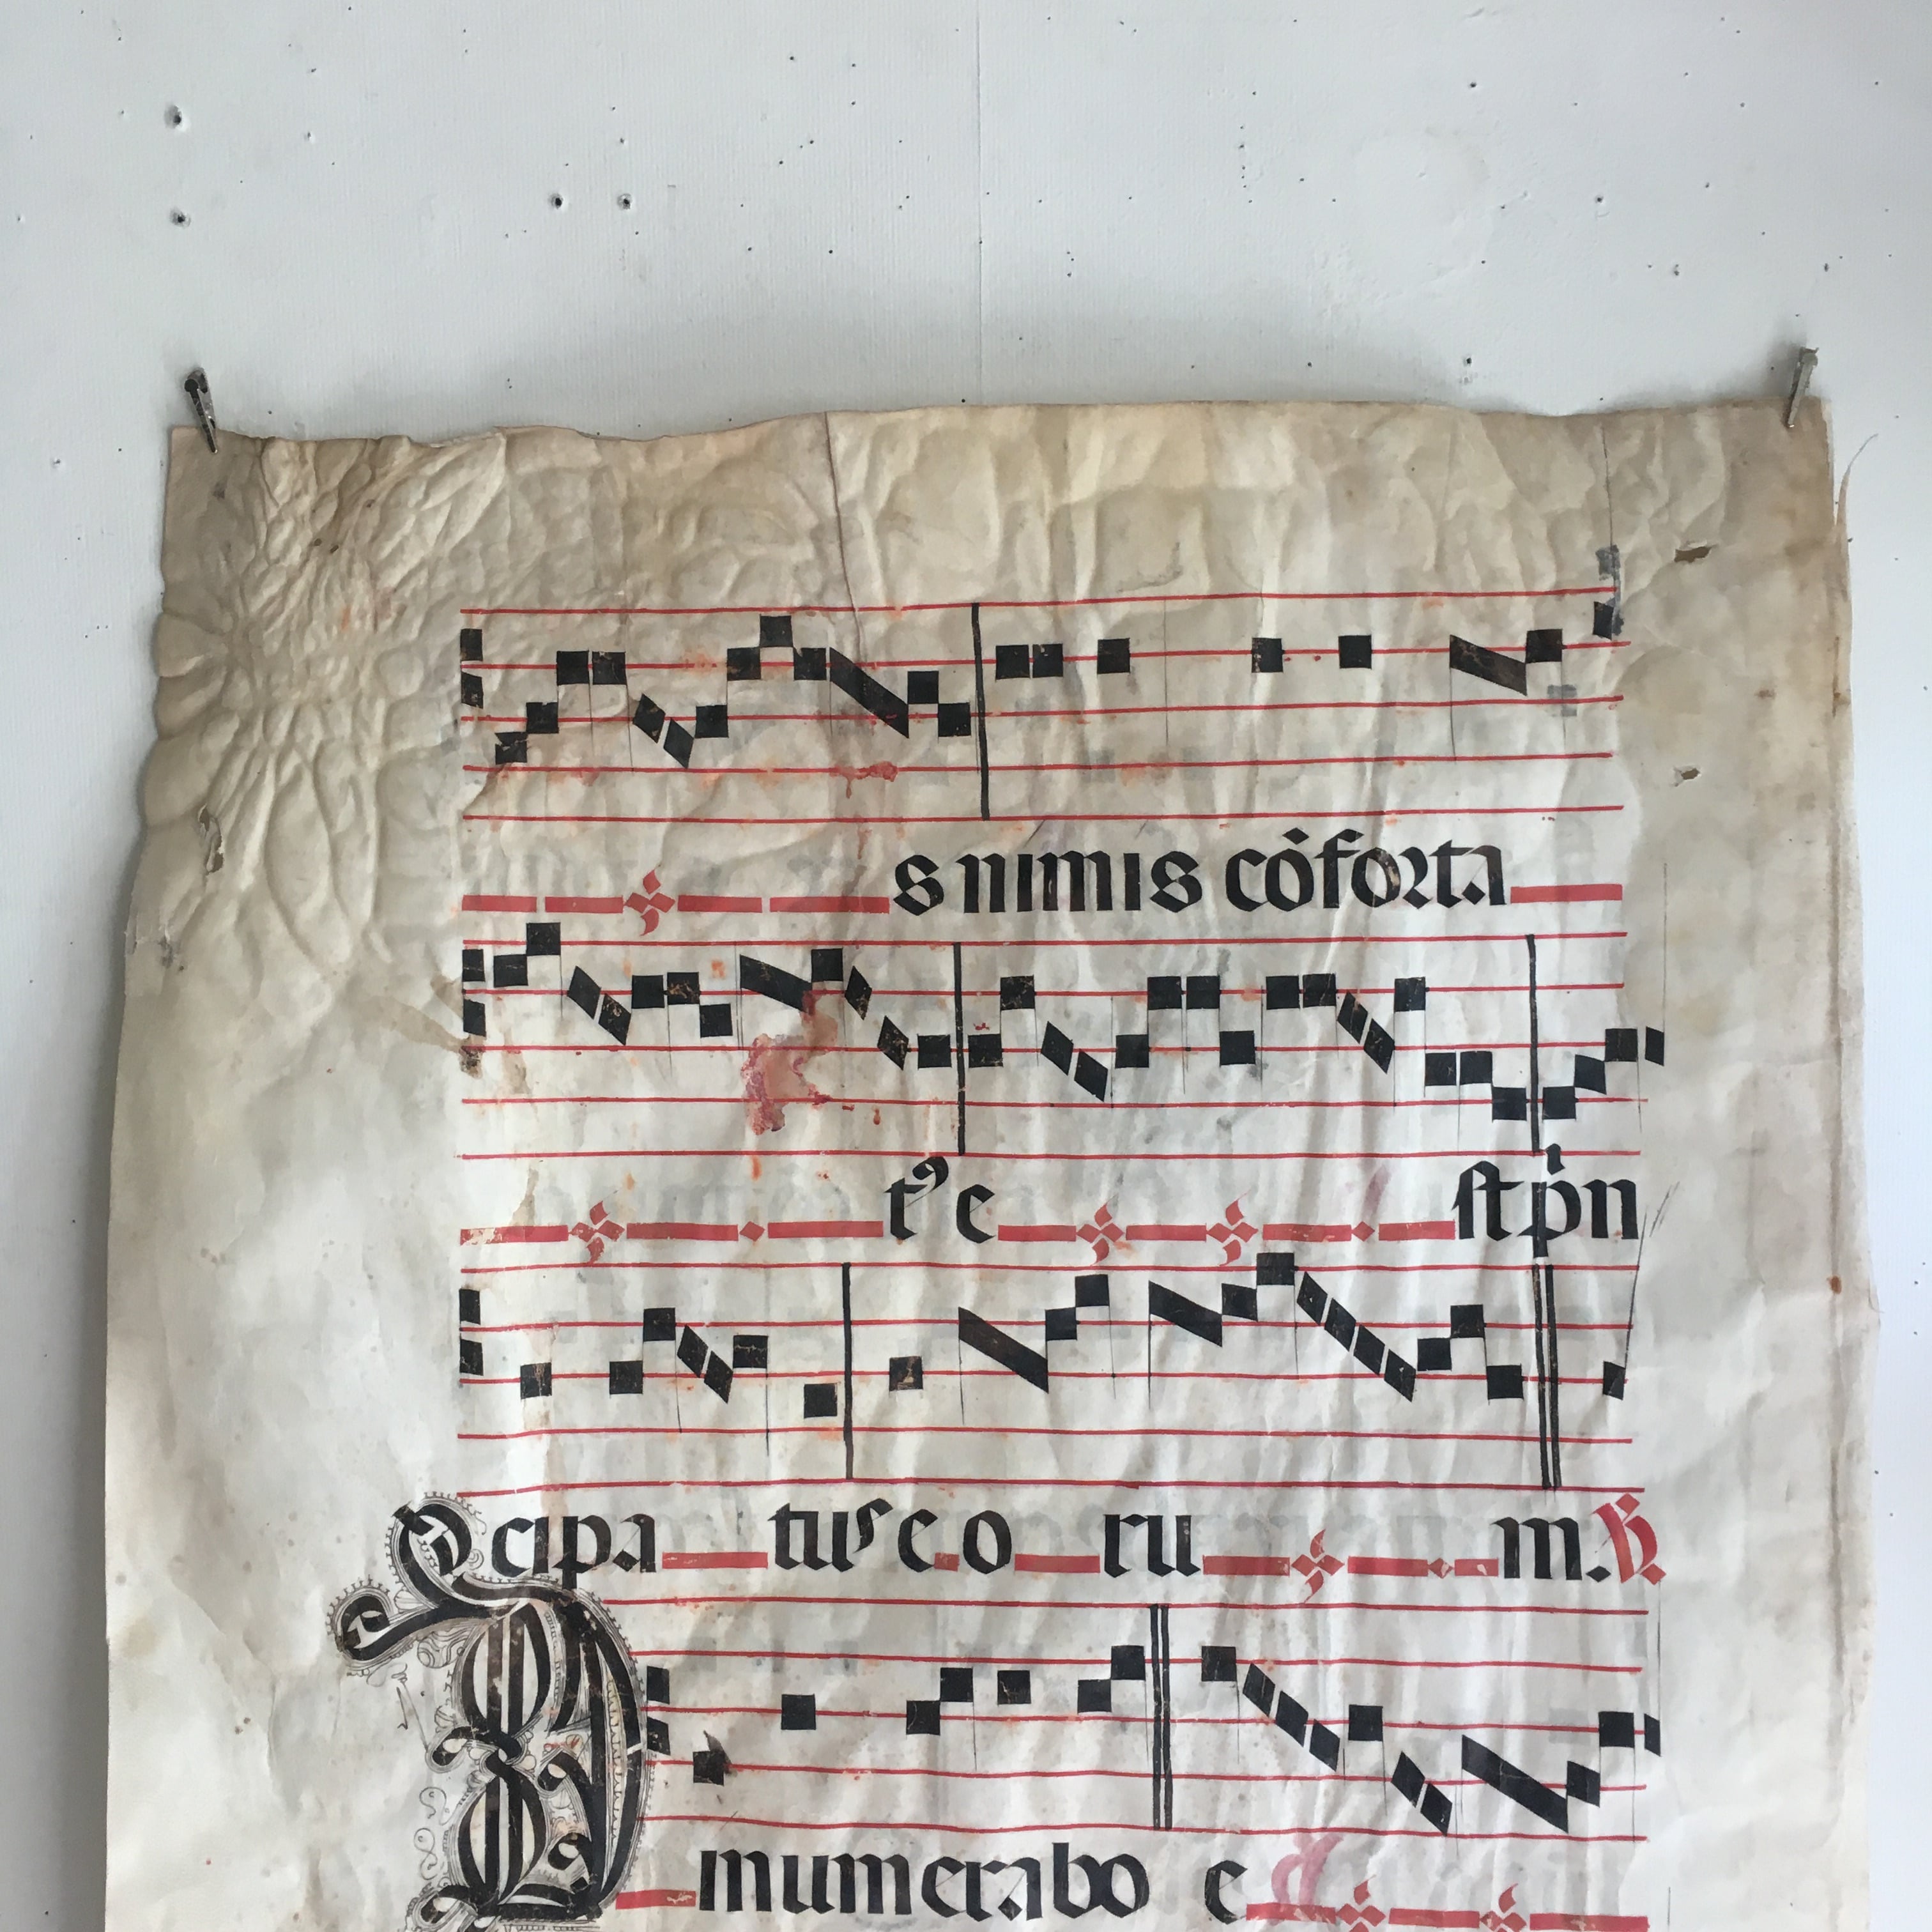 s nimis cōforta
tꝰ e st p̄n
cipa tus eo ru m. ℣.
Dinumerabo e